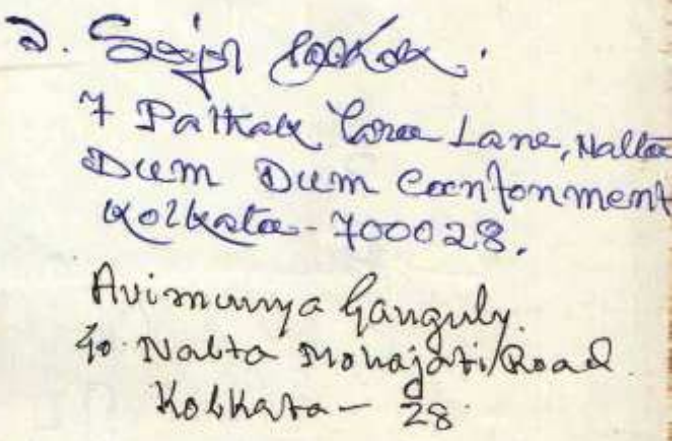 ২. Saijit Sarkar.
7 Pathak Lane, Nalta
Dum Dum Cantonment
Kolkata - 700028.
Avimunya Ganguly.
40. Nalta Mohajati Road.
Kolkata - 28.